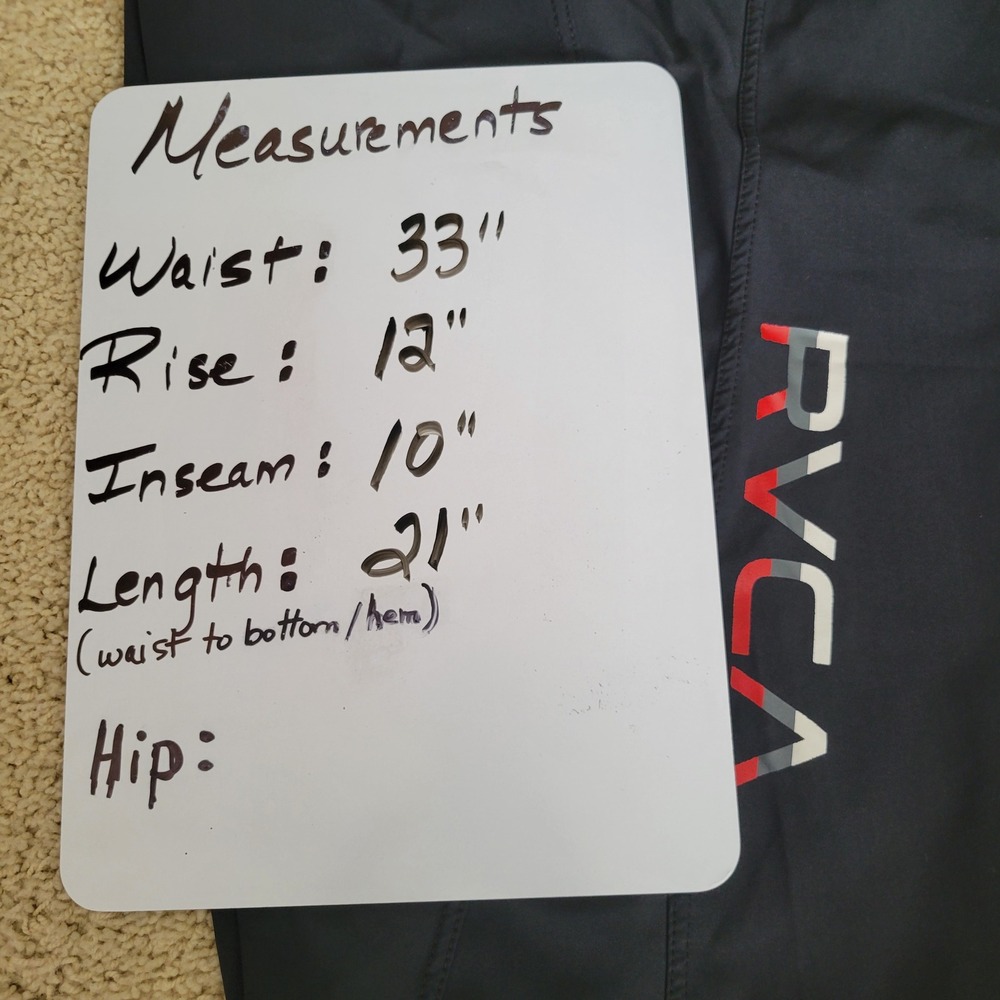 Measurements
Waist: 33"
Rise: 12"
Inseam: 10"
Length: 21"
(waist to bottom/hem)
Hip:
RVCA